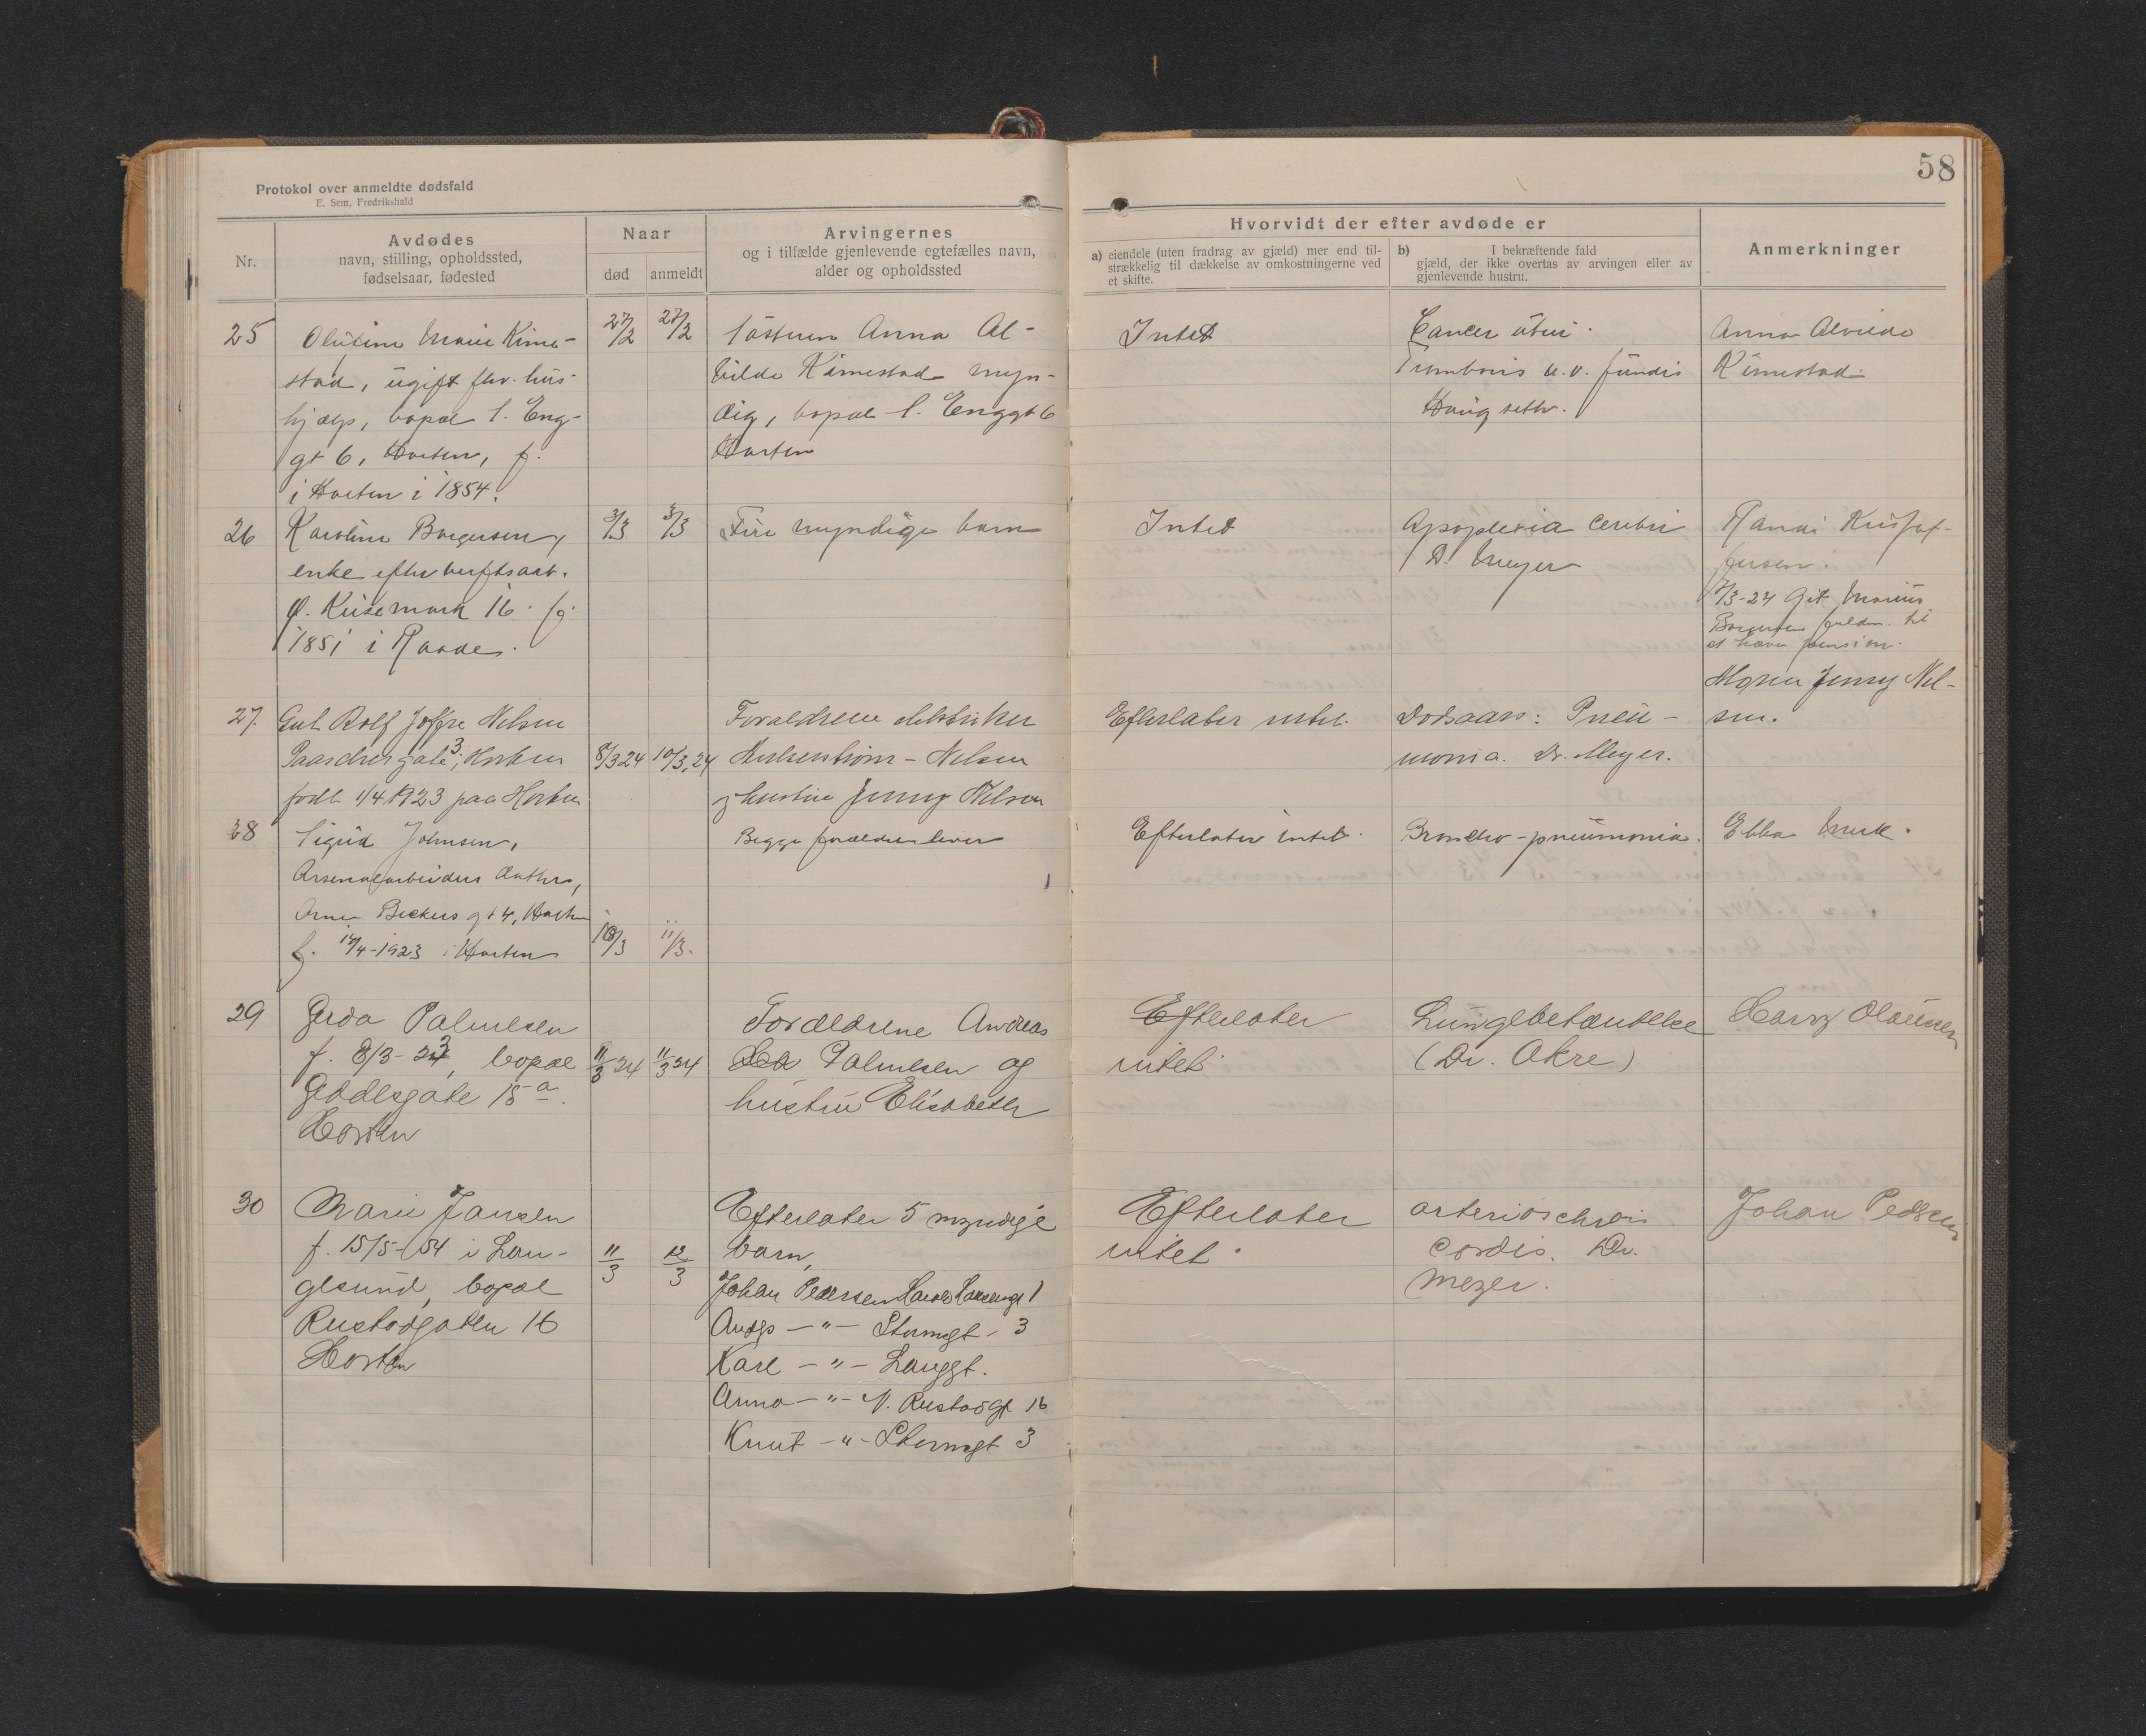 58
Protokol over anmeldte dødsfald
E. Sem, Fredrikshald
Nr.
Avdødes
navn, stilling, opholdssted,
fødselsaar, fødested
Naar
død
anmeldt
Arvingernes
og i tilfælde gjenlevende egtefælles navn,
alder og opholdssted
Hvorvidt der efter avdøde er
a) eiendele (uten fradrag av gjæld) mer end til-
strækkelig til dækkelse av omkostningerne ved
et skifte.
b) I bekræftende fald
gjæld, der ikke overtas av arvingen eller av
gjenlevende hustru.
Anmerkninger
25
Olutine Marie Kime-
stad, ugift fhv. hus-
hjælp, bopæl l. Eng-
gt 6, Horten, f.
i Horten i 1854.
27/2
27/2
Søsteren Anna Al-
vilde Kimestad myn-
dig, bopæl l. Enggt 6
Horten
Intet
Cancer uteri.
Trombosis u.v. fundis
Haugseth.
Anna Alvilde
Kimestad.
26
Karoline Borgersen,
enke efter verftsarb.
Ø. Keisemark 16. f.
1851 i Raade.
3/3
3/3
Fire myndige barn
Intet
Apoplexia cerebri
D. Meyer
Randi Kristof-
fersen.
7/3-24 Git Marius
Borgersen fuldm. til
at hæve pension.
27.
Gut Rolf Joffre Nilsen
Paaschesgate 3, Horten
født 1/4 1923 paa Horten
8/3 24
10/3.24
Forældrene elektriker
- Nilsen
og hustru Jenny Nilsen
Efterlater intet.
Dødsaars: Pneu-
monia. Dr. Meyer.
Mosen Jenny Nil-
sen.
28
Sigrid Johnsen,
Arsenalarbeiders datter,
Arne Beckers gt 4, Horten
f. 14/4-1923 i Horten
10/3
11/3.
Begge forældre lever
Efterlater intet.
Broncho-pneumonia.
Ebba Munk.
29
Gerda Palmesen
f. 8/3-23, bopæl
Geddesgate 15 a.
Horten
11/3 24
11/3 24
Forældrene Andreas
Palmesen og
hustru Elisabeth
Efterlater
intet.
Lungebetændelse
(Dr. Akre)
Harry Olaussen
30
Marie Jansen
f. 15/5-54 i Lan-
gesund, bopæl
Rustadgaten 16
Horten
11/3
12/3
Efterlater 5 myndige
barn,
Johan Pedersen Harald Haarfagersgt 1
Andrs -"- Stormgt. 3
Karl -"- Langgt.
Anna -"- N. Rustadgt 16
Knut -"- Stormgt 3
Efterlater
intet.
arteriosclerosis
cordis. Dr.
Meyer.
Johan Pedersen